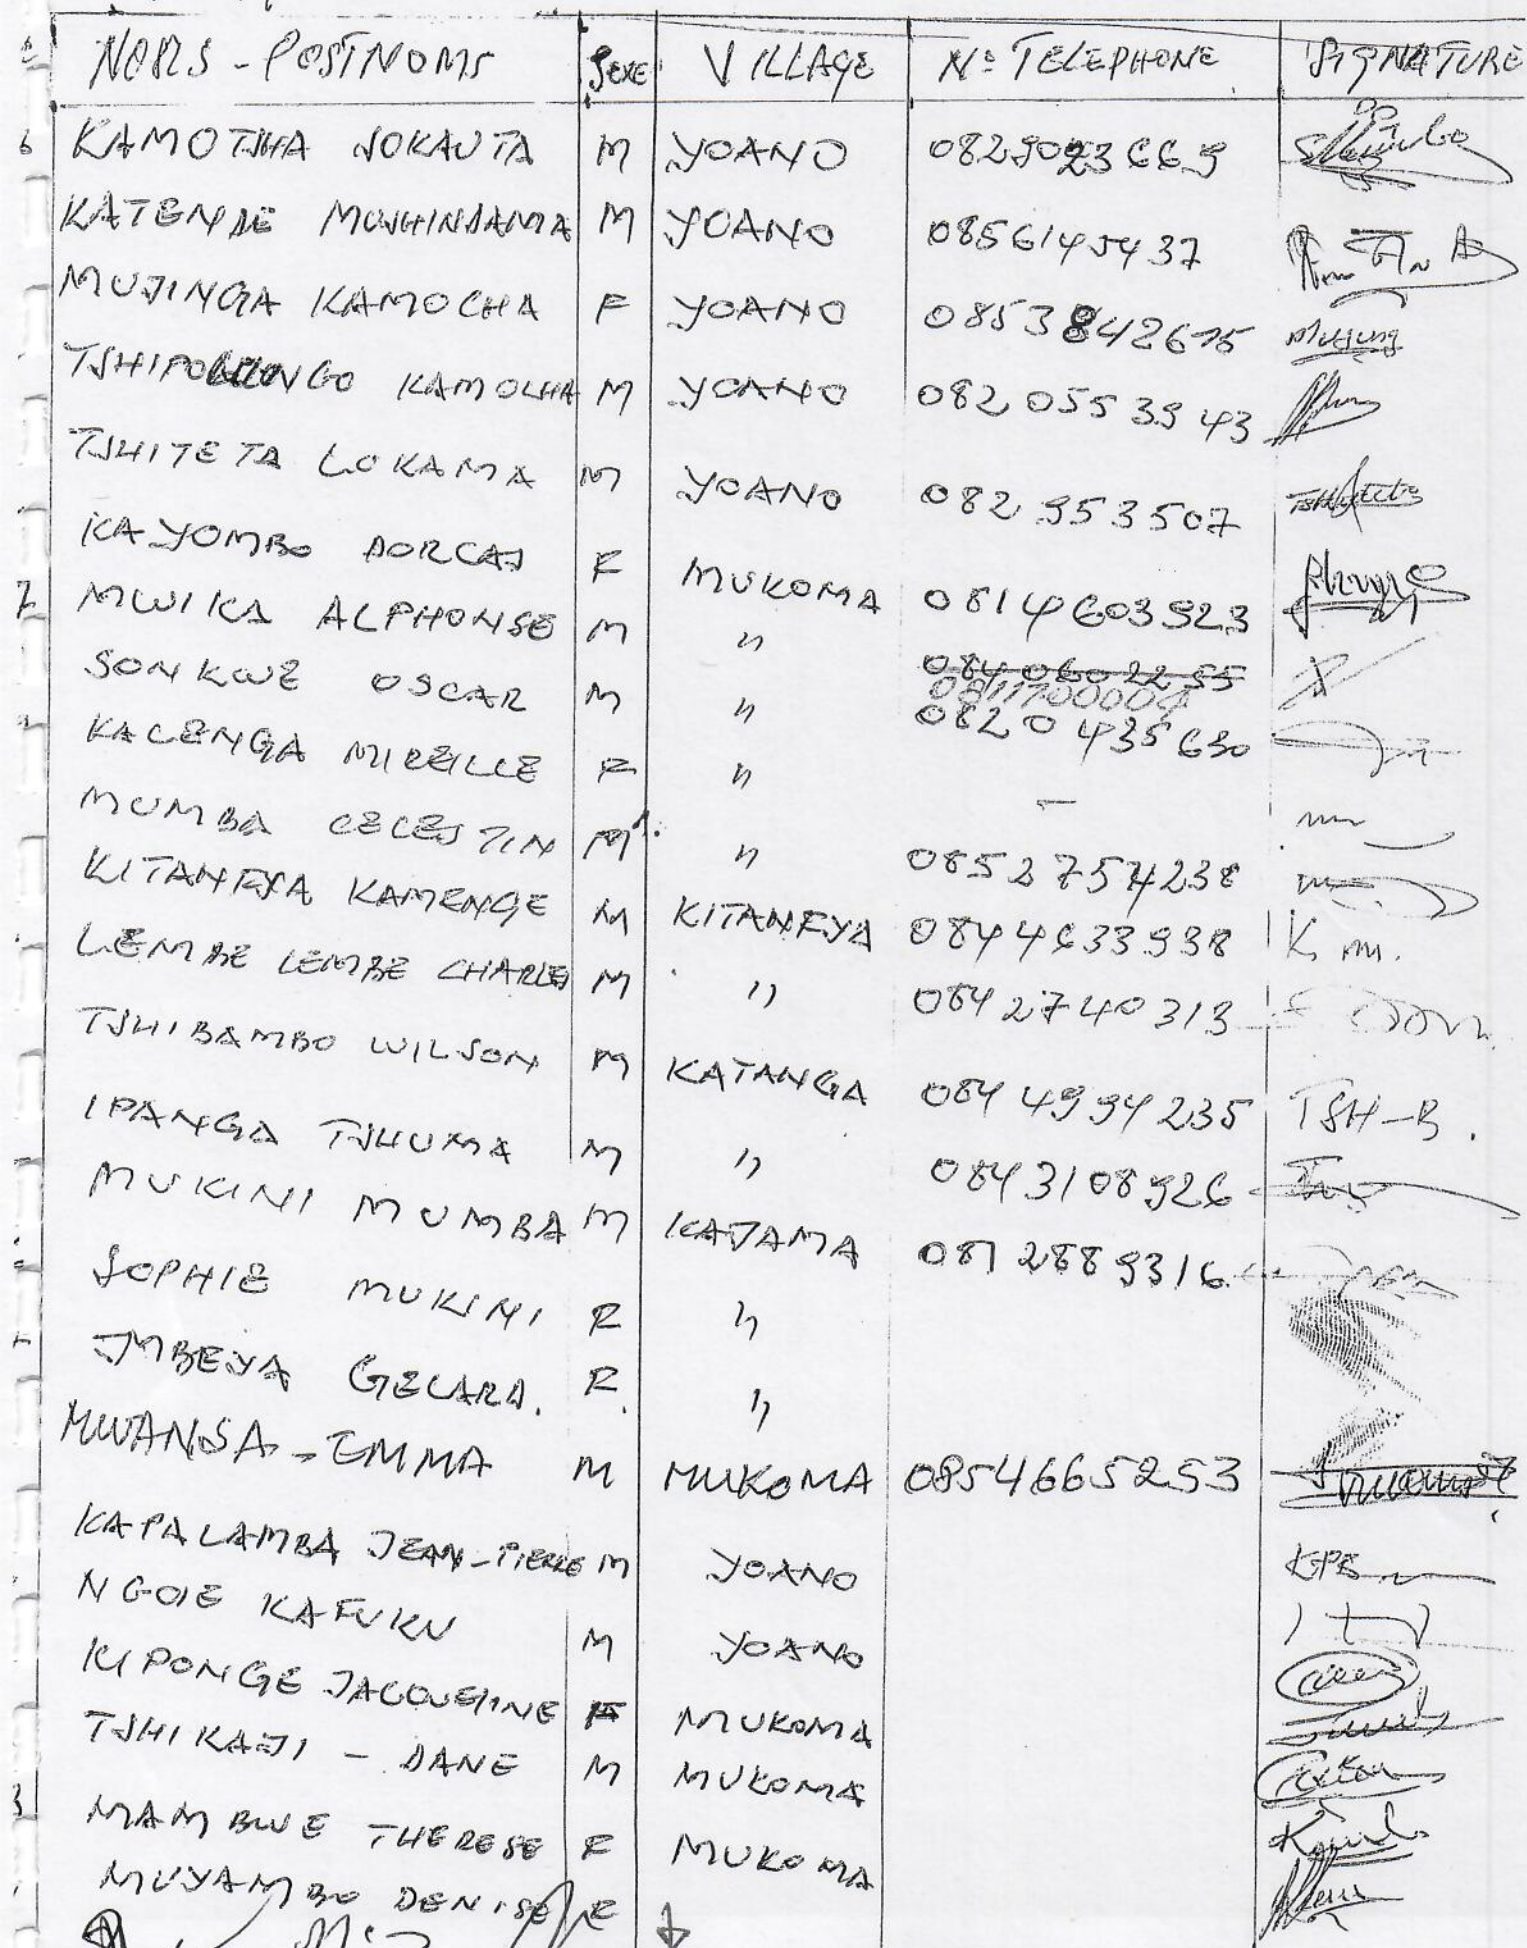 NOMS - POSTNOMS Sexe VILLAGE No TELEPHONE SIGNATURE
6 KAMOTSHA M YOANO 0829023669
KATENDE MUSHINDAMA M YOANO 0856145437
MUJINGA KAMOCHA F YOANO 0853842615 Mujing
KAMOCHA M YOANO 0820553943
TSHITETA LOKAMA M YOANO 082 953507
KAYOMBO DORCAS F MUKOMA 0814603923
7 MWIKA ALPHONSE M " 0840602255
0811700004
SONKWE OSCAR M " 0820435630
KALENGA MIREILLE F " -
MUMBA CELESTIN M " 0852754238
KITANFYA KAMENGE M KITANFYA 0844633938 K
LEMBE LEMBE CHARLES M " 0842740313
TSHIBAMBO WILSON M KATANGA 0844994235 TSH-B.
IPANGA TSHUMA M " 0843108926
MUKINI MUMBA M KAJAMA 0812889316
SOPHIE MUKINI F "
MBEYA GELARD. F. "
MWANSA - EMMA M MUKOMA 0854665253
KAPALAMBA JEAN-PIERRE M YOANO KPB
NGOIE KAFUKU M YOANO
KIPONGE JACQUELINE F MUKOMA
TSHIKAJI - DANE M MUKOMA
3 MAMBWE THERESE F MUKOMA
MUYAMBO DENISE F